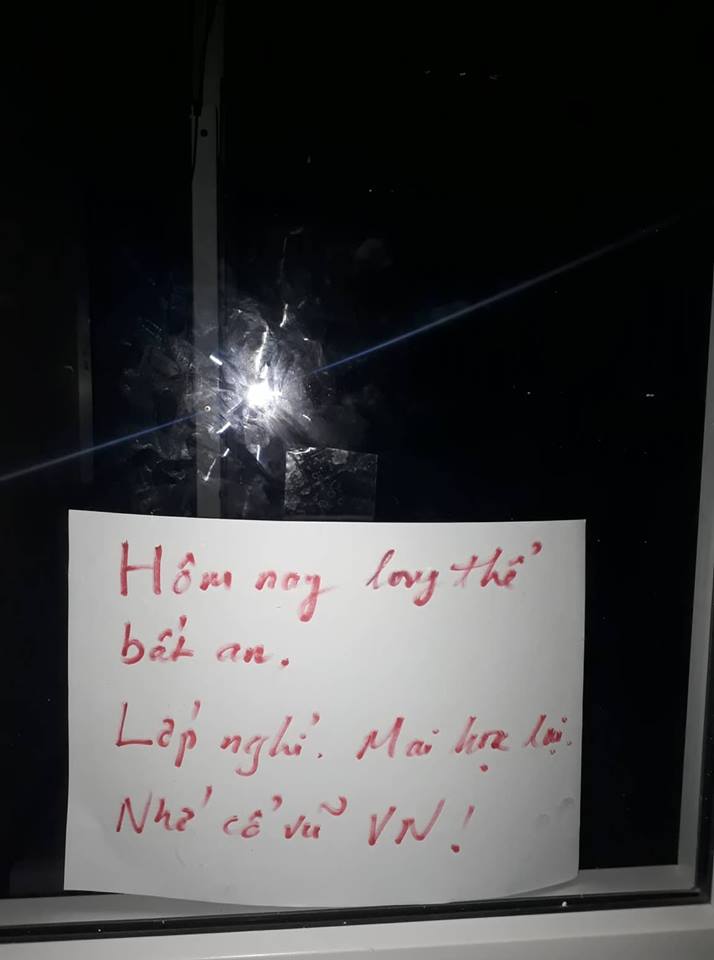 Hôm nay long thể
bất an.
Lớp nghỉ. Mai học lại.
Nhớ cổ vũ VN!